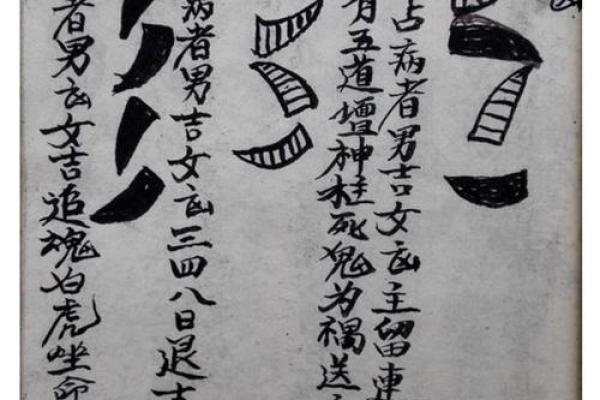 占病者男吉女凶主留連
有五道壇神枉死鬼为禍送
病者男吉女凶三四八日退吉
者男凶女吉追魂白虎坐命